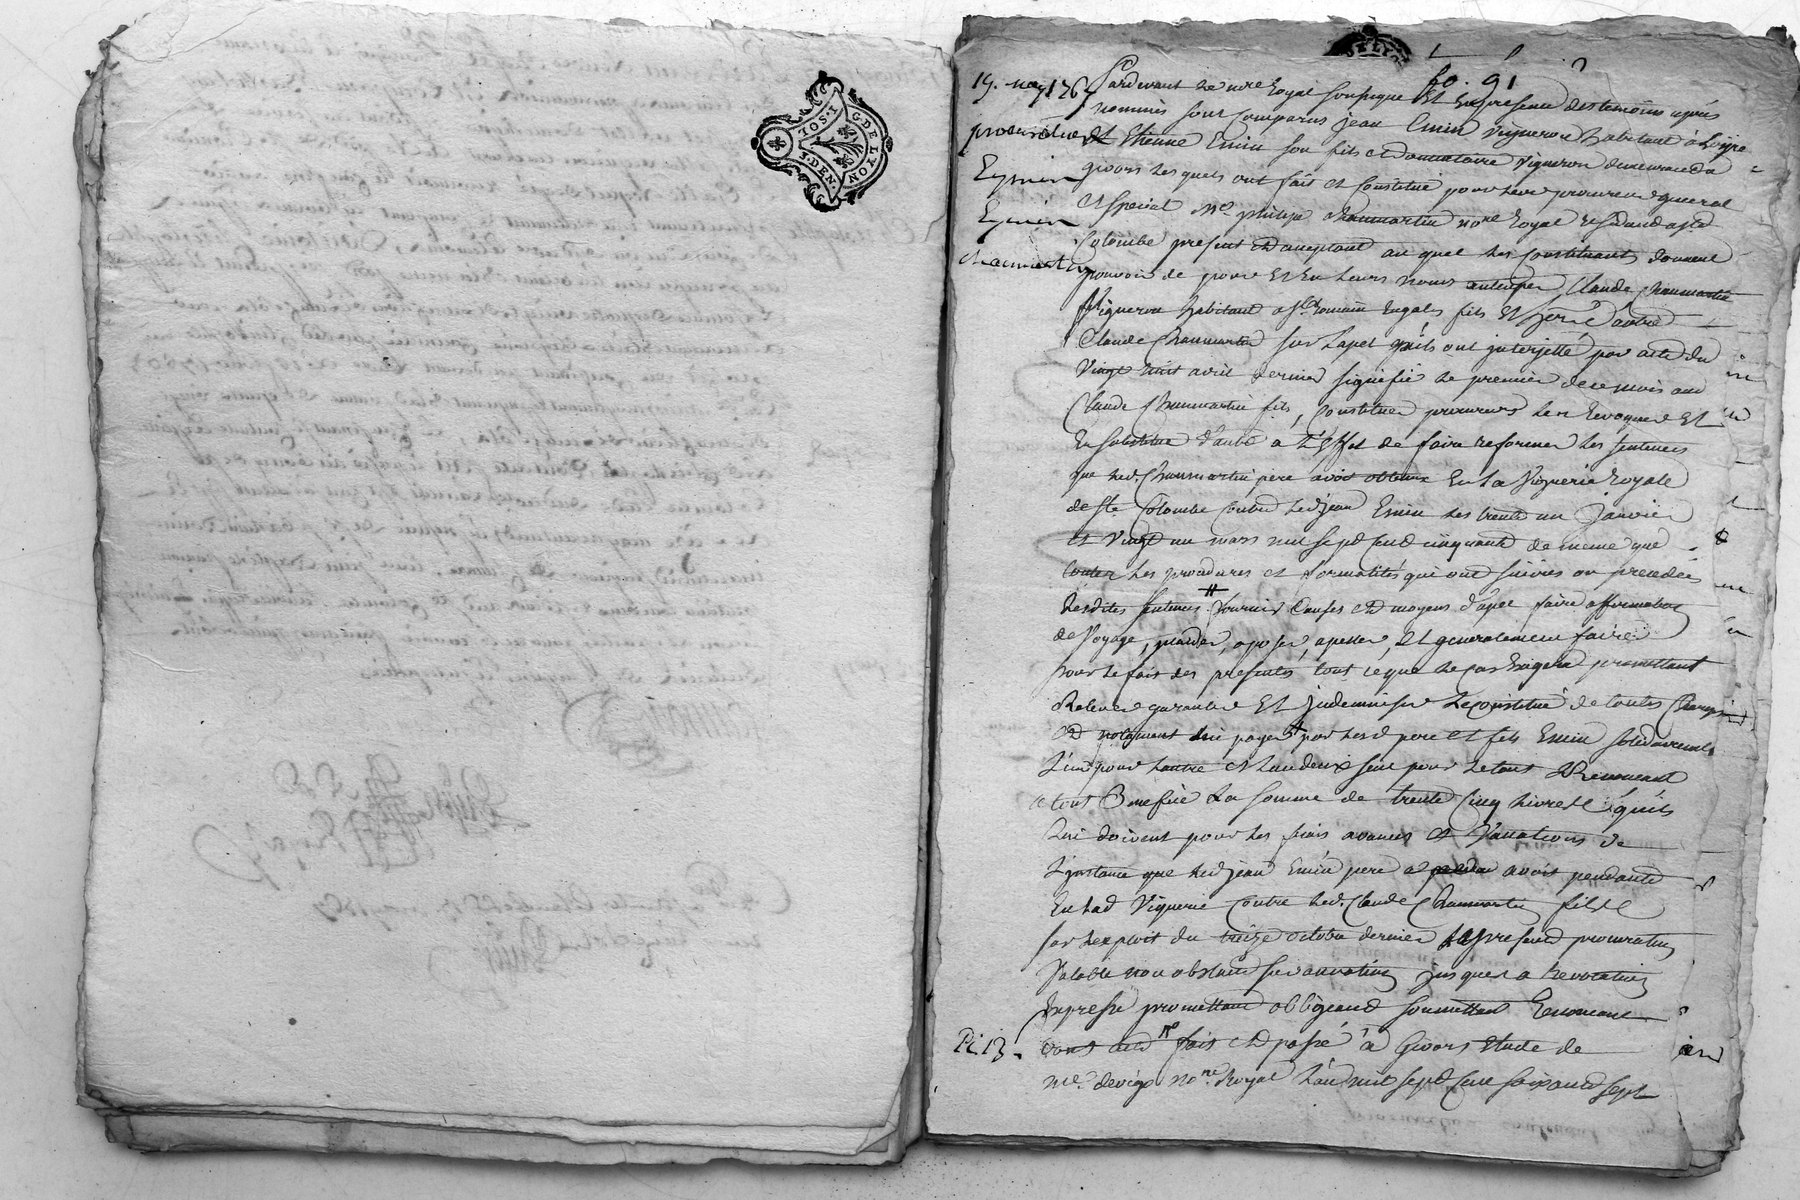 G. DE LYON
2 SOS. 1
3 DEN.
fo. 91
19. may 1767
procuration
Eymin
Eymin
chaumartin
Pardevant le no.re Royal soussigné Et En presence des temoins apres
nommés sont comparus jean Emin vigneron habitant à Loire
et Etienne Emin son fils et donnataire vigneron demeurant a
givors Lesquels ont fait et constitué pour leur procureur general
et special M.e philipe chaumartin no.re Royal residant a ste
Colombe present et acceptant au quel Les constituants donnent
pouvoir de pour Et En Leurs noms anticiper Claude chaumartin
Vigneron habitant a st Romain En gal fils Et her. d'autre
Claude Chaumartin sur L'apel qu'ils ont interjetté par acte du
Vingt huit avril dernier signifié Le premier de ce mois aud
Claude Chaumartin fils, Constituer procureurs Les Revoquer Et
En substituer d'autre a L'effet de faire reformer Les sentences
que led. Chaumartin pere avoit obtenu En La Viguerie Royale
de ste Colombe contre led jean Emin Les trente un janvier
et vingt un mars mil sept cent cinquante de meme que
toutes Les procedures et formalités qui ont suivies ou precedées
Lesdites sentences fournir causes et moyens d'apel faire affirmation
de Voyage, plaider, oposer, apeller, Et generalement faire
pour Le fait des presentes tout ce que Le cas Exigera promettant
Relever garantir Et indemniser Le constitué de toutes Charges
et notament lui payer par Lesd pere et fils Emin solidairement
L'un pour Lautre et L'un deux seul pour Le tout Renoncant
a tout Benefice La somme de trente cinq Livres qu'ils
Lui doivent pour Les frais avances et Vacations de
L'jnstance que led jean Emin pere avoit pendante
En Lad Viguerie contre led. Claude Chaumartin fils
sur L'exploit du treize octobre dernier La presente procuration
Valable non obstant surannation jusques a revocation
Expresse promettant obligeant soumettant Renoncant
fait et passé à Givors Etude de
Pc 13.
M.e devigo no.re Royal L'an mil sept cent soixante sept